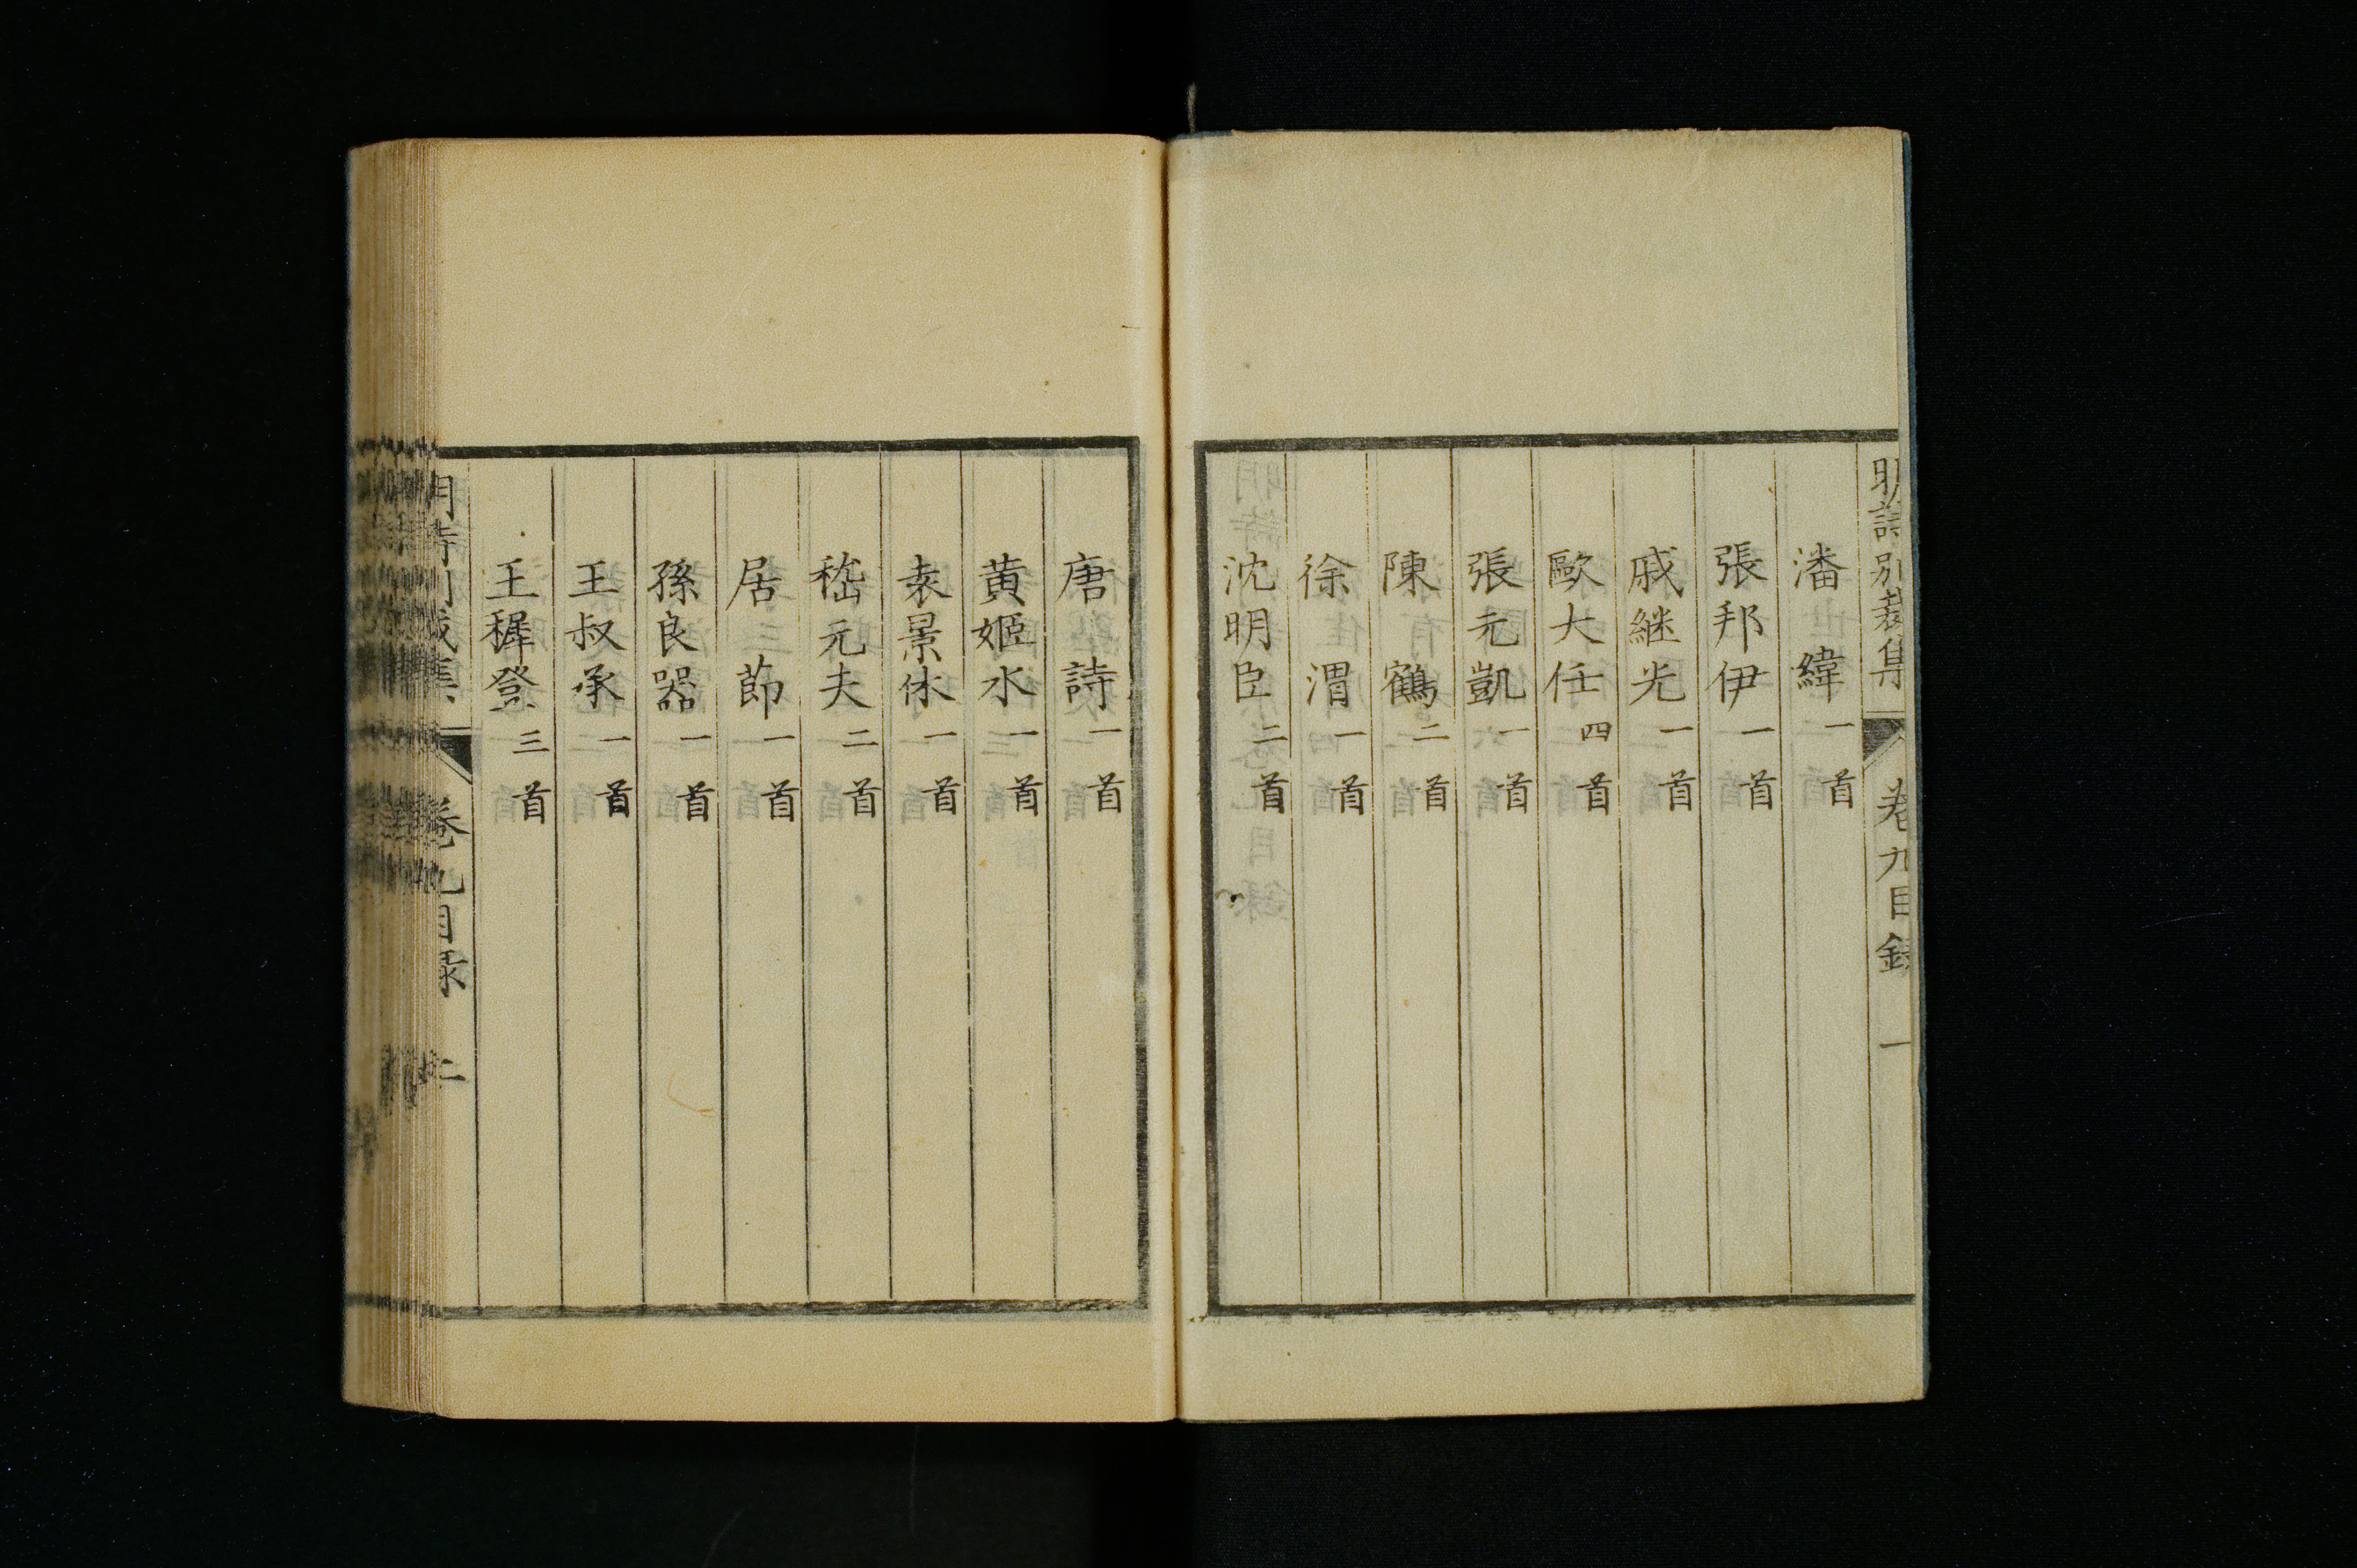 明詩別裁集 卷九目錄 一
潘緯 一首
張邦伊 一首
戚継光 一首
歐大任 四首
張元凱 一首
陳鶴 二首
徐渭 一首
沈明臣 二首
唐詩 一首
黄姬水 一首
袁景休 一首
嵇元夫 二首
居莭 一首
孫良器 一首
王叔承 一首
王穉登 三首
明詩別裁集 卷九目录 二